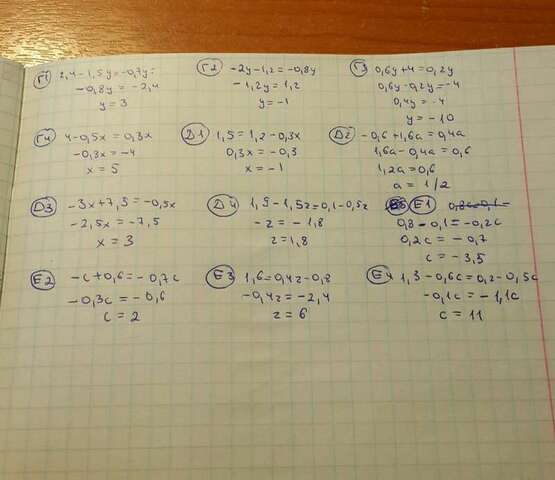 Г1 2,4-1,5y=-0,7y=
-0,8y=-2,4
y=3
Г2 -2y-1,2=-0,8y
-1,2y=1,2
y=-1
Г3 0,6y+4=0,2y
0,6y-0,2y=-4
0,4y=-4
y=-10
Г4 4-0,5x=0,3x
-0,3x=-4
x=5
Д1 1,5=1,2-0,3x
0,3x=-0,3
x=-1
Д2 -0,6+1,6a=0,4a
1,6a-0,4a=0,6
1,2a=0,6
a=1/2
Д3 -3x+7,5=-0,5x
-2,5x=-7,5
x=3
Д4 1,5-1,5z=0,1-0,5z
-z=-1,8
z=1,8
Е1 0,8c-0,1=
0,8-0,1=-0,2c
0,2c=-0,7
c=-3,5
Е2 -c+0,6=-0,7c
-0,3c=-0,6
c=2
Е3 1,6=0,4z-0,8
-0,4z=-2,4
z=6
Е4 1,3-0,6c=0,2-0,5c
-0,1c=-1,1c
c=11